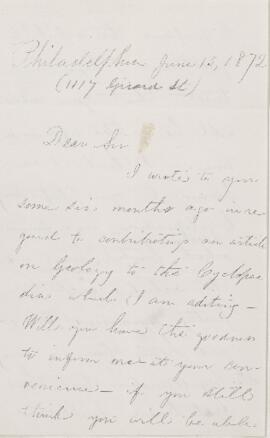 Philadelphia June 12, 1872
(1117 Girard St)
Dear Sir
I wrote to you
some six months ago in re
gard to contributing an article
on Geology to the Cyclopae
dia which I am editing –
Will you have the goodness
to inform me at your con-
venience – if you still
think you will be able